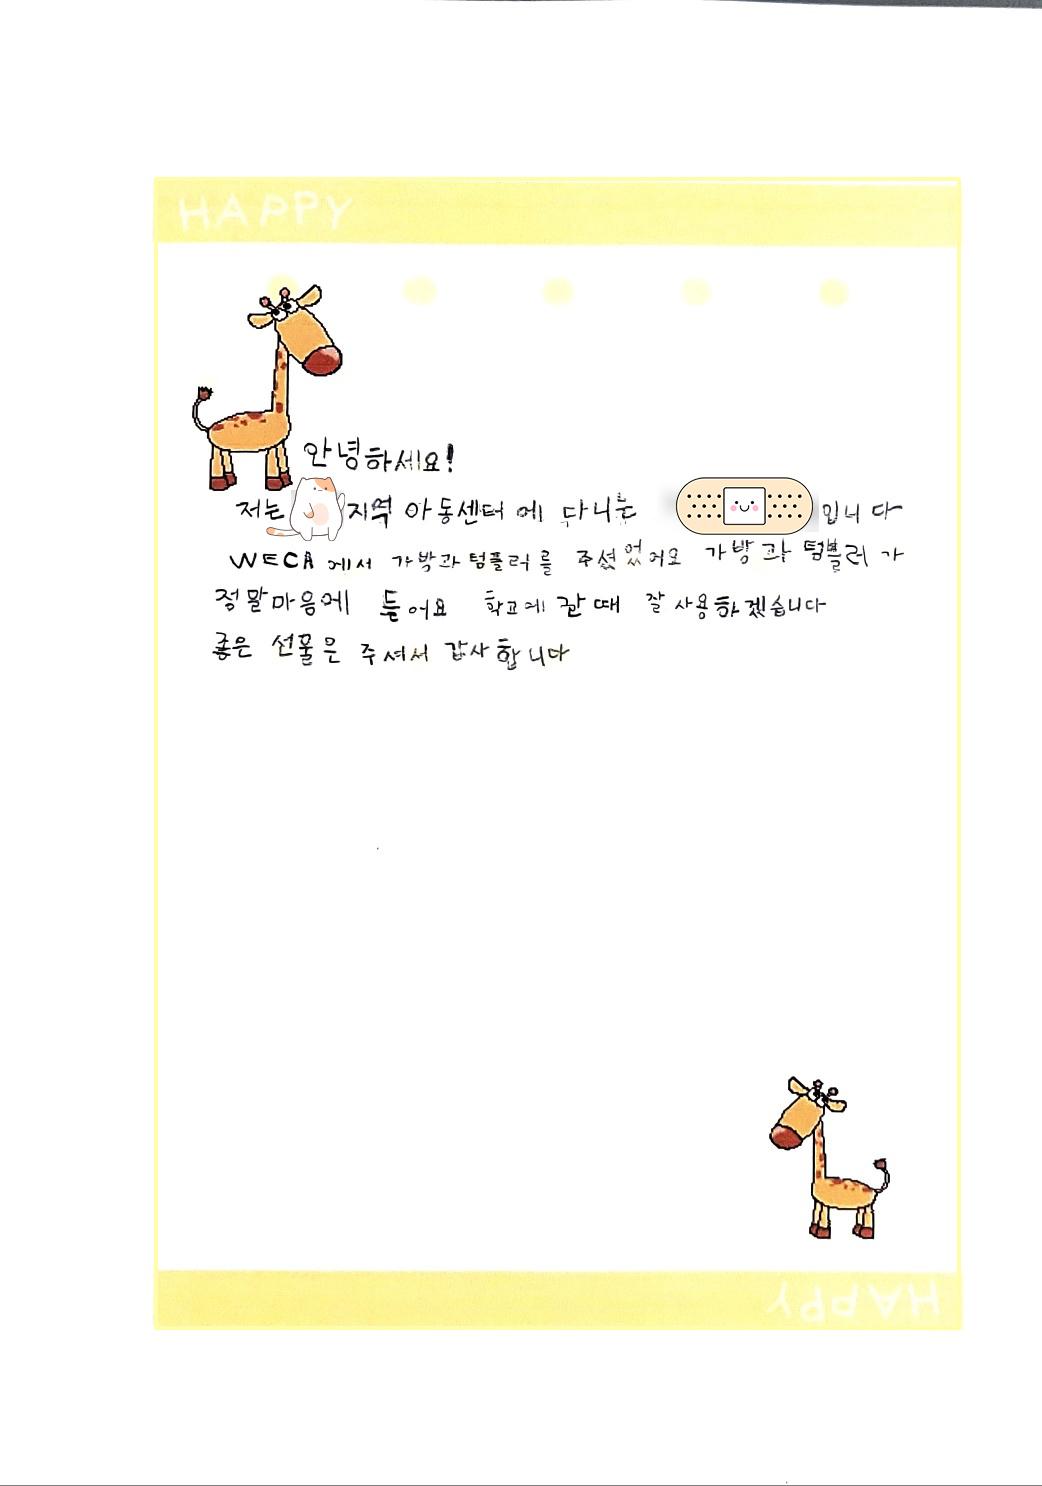 HAPPY
안녕하세요!
저는 지역 아동센터 에 다니는 입니다
WECA 에서 가방과 텀플러를 주셨었어요 가방과 텀블러가
정말마음에 들어요 학교에 갈때 잘 사용하겠습니다
좋은 선물은 주셔서 감사합니다
HAPPY